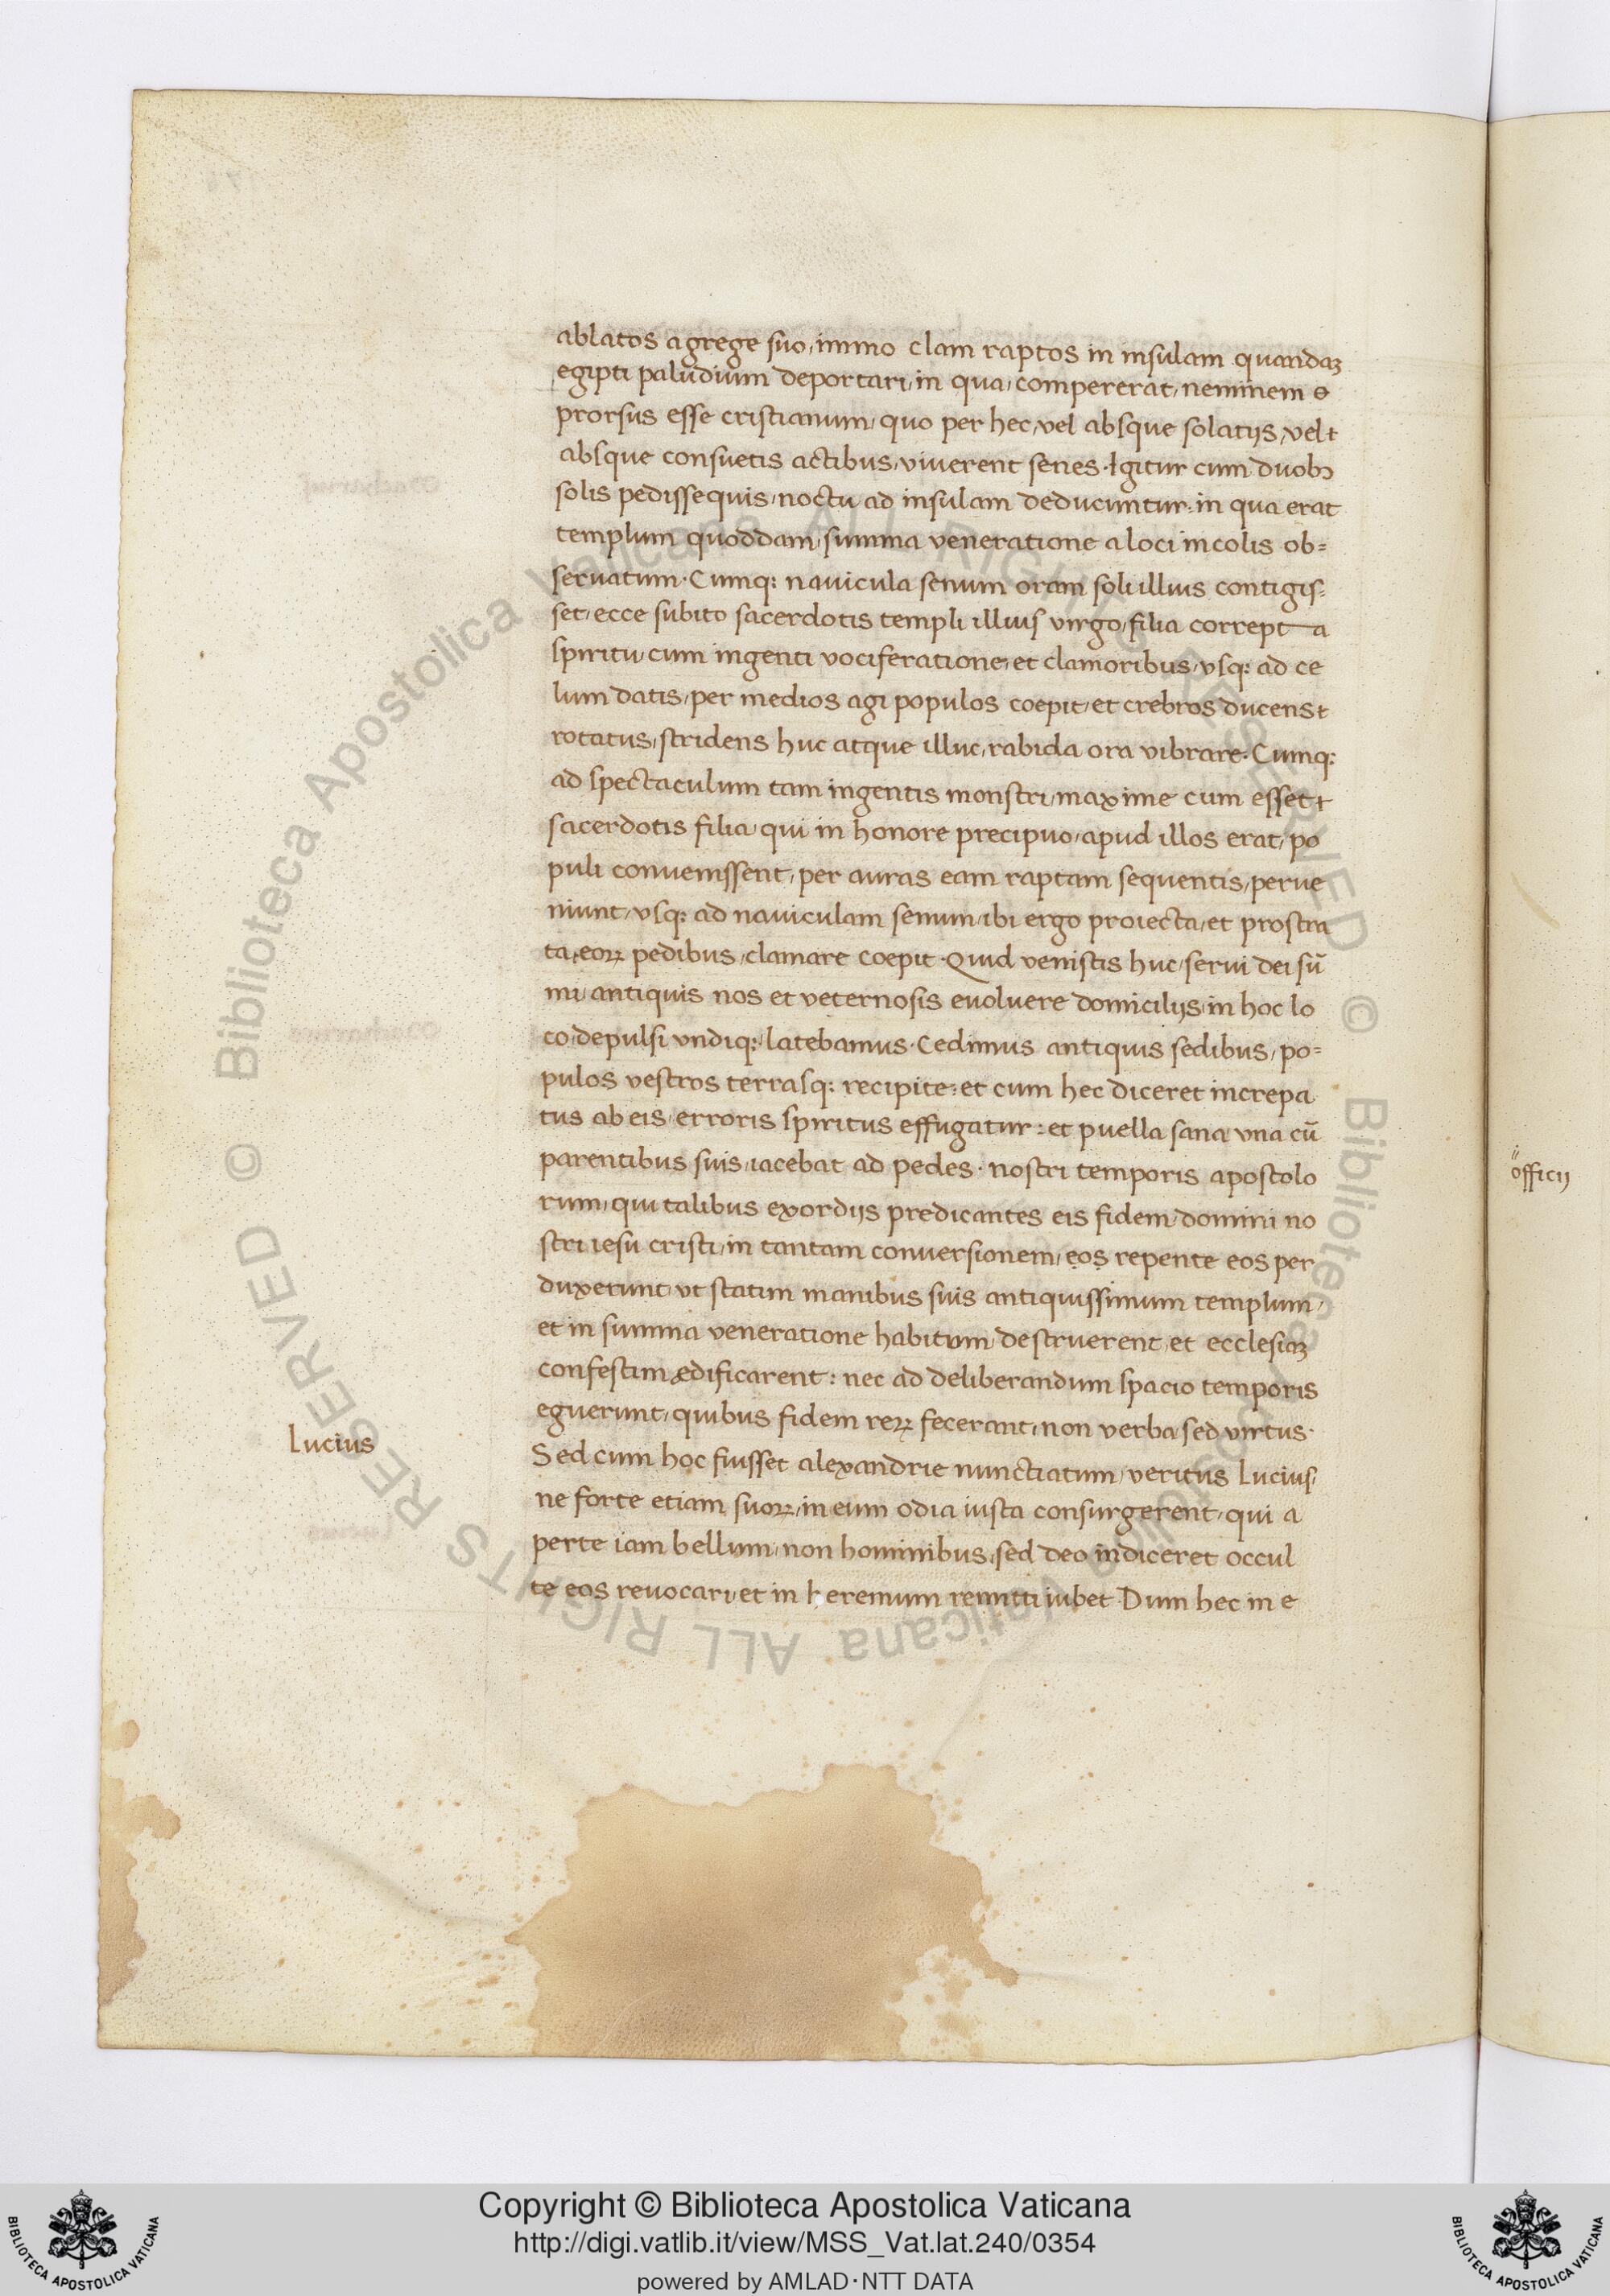 ablatos a grege suo, immo clam raptos in insulam quandaꝫ
egipti paludium deportari, in qua, compererat, neminem
prorsus esse cristianum, quo per hec, vel absque solatijs, vel
absque consuetis actibus, viuerent senes. Igitur cum duobꝫ
solis pedissequis, noctu ad insulam deducuntur, in qua erat
templum quoddam, summa veneratione a loci incolis ob=
seruatum. Cumq: nauicula senum oram soli illius contigis=
set, ecce subito sacerdotis templi illius virgo, filia correpta
spiritu, cum ingenti vociferatione, et clamoribus, vsq: ad ce
lum datis, per medios agi populos coepit, et crebros ducens
rotatus, stridens huc atque illuc, rabida ora vibrare. Cumq:
ad spectaculum tam ingentis monstri, maxime cum esset
sacerdotis filia, qui in honore precipuo, apud illos erat, po
puli conuenissent, per auras eam raptam sequentis, perue
niunt, vsq: ad nauiculam senum, ibi ergo proiecta, et prostra
ta, eoꝝ pedibus, clamare coepit. Quid venistis huc, serui dei su̅
mi, antiquis nos et veternosis euoluere domicilijs, in hoc lo
co, depulsi vndiq:, latebamus. Cedimus antiquis sedibus, po=
pulos vestros terrasq: recipite: et cum hec diceret increpa
tus ab eis, erroris spiritus effugatur: et puella sana vna cu̅
parentibus suis, iacebat ad pedes. nostri temporis apostolo
rum, qui talibus exordijs predicantes eis fidem, domini no
stri iesu cristi, in tantam conuersionem, ẹọṣ repente eos per
duxerunt, vt statim manibus suis antiquissimum templum,
et in summa veneratione habitum, destruerent, et ecclesiaꝫ
confestim ædificarent: nec ad deliberandum spacio temporis
eguerunt, quibus fidem reꝝ fecerant, non verba sed virtus.
Lucius
Sed cum hoc fuisset alexandrie nunctiatum, veritus Lucius,
ne forte etiam suoꝝ, in eum odia iusta consurgerent, qui a
perte iam bellum, non hominibus, sed deo indiceret occul
te eos reuocari, et in heremum remitti iubet. Dum hec in e
officij
© Biblioteca Apostolica Vaticana ALL RIGHTS RESERVED © Biblioteca Apostolica Vaticana ALL RIGHTS RESERVED
Copyright © Biblioteca Apostolica Vaticana
http://digi.vatlib.it/view/MSS_Vat.lat.240/0354
powered by AMLAD·NTT DATA
BIBLIOTECA APOSTOLICA VATICANA
BIBLIOTECA APOSTOLICA VATICANA